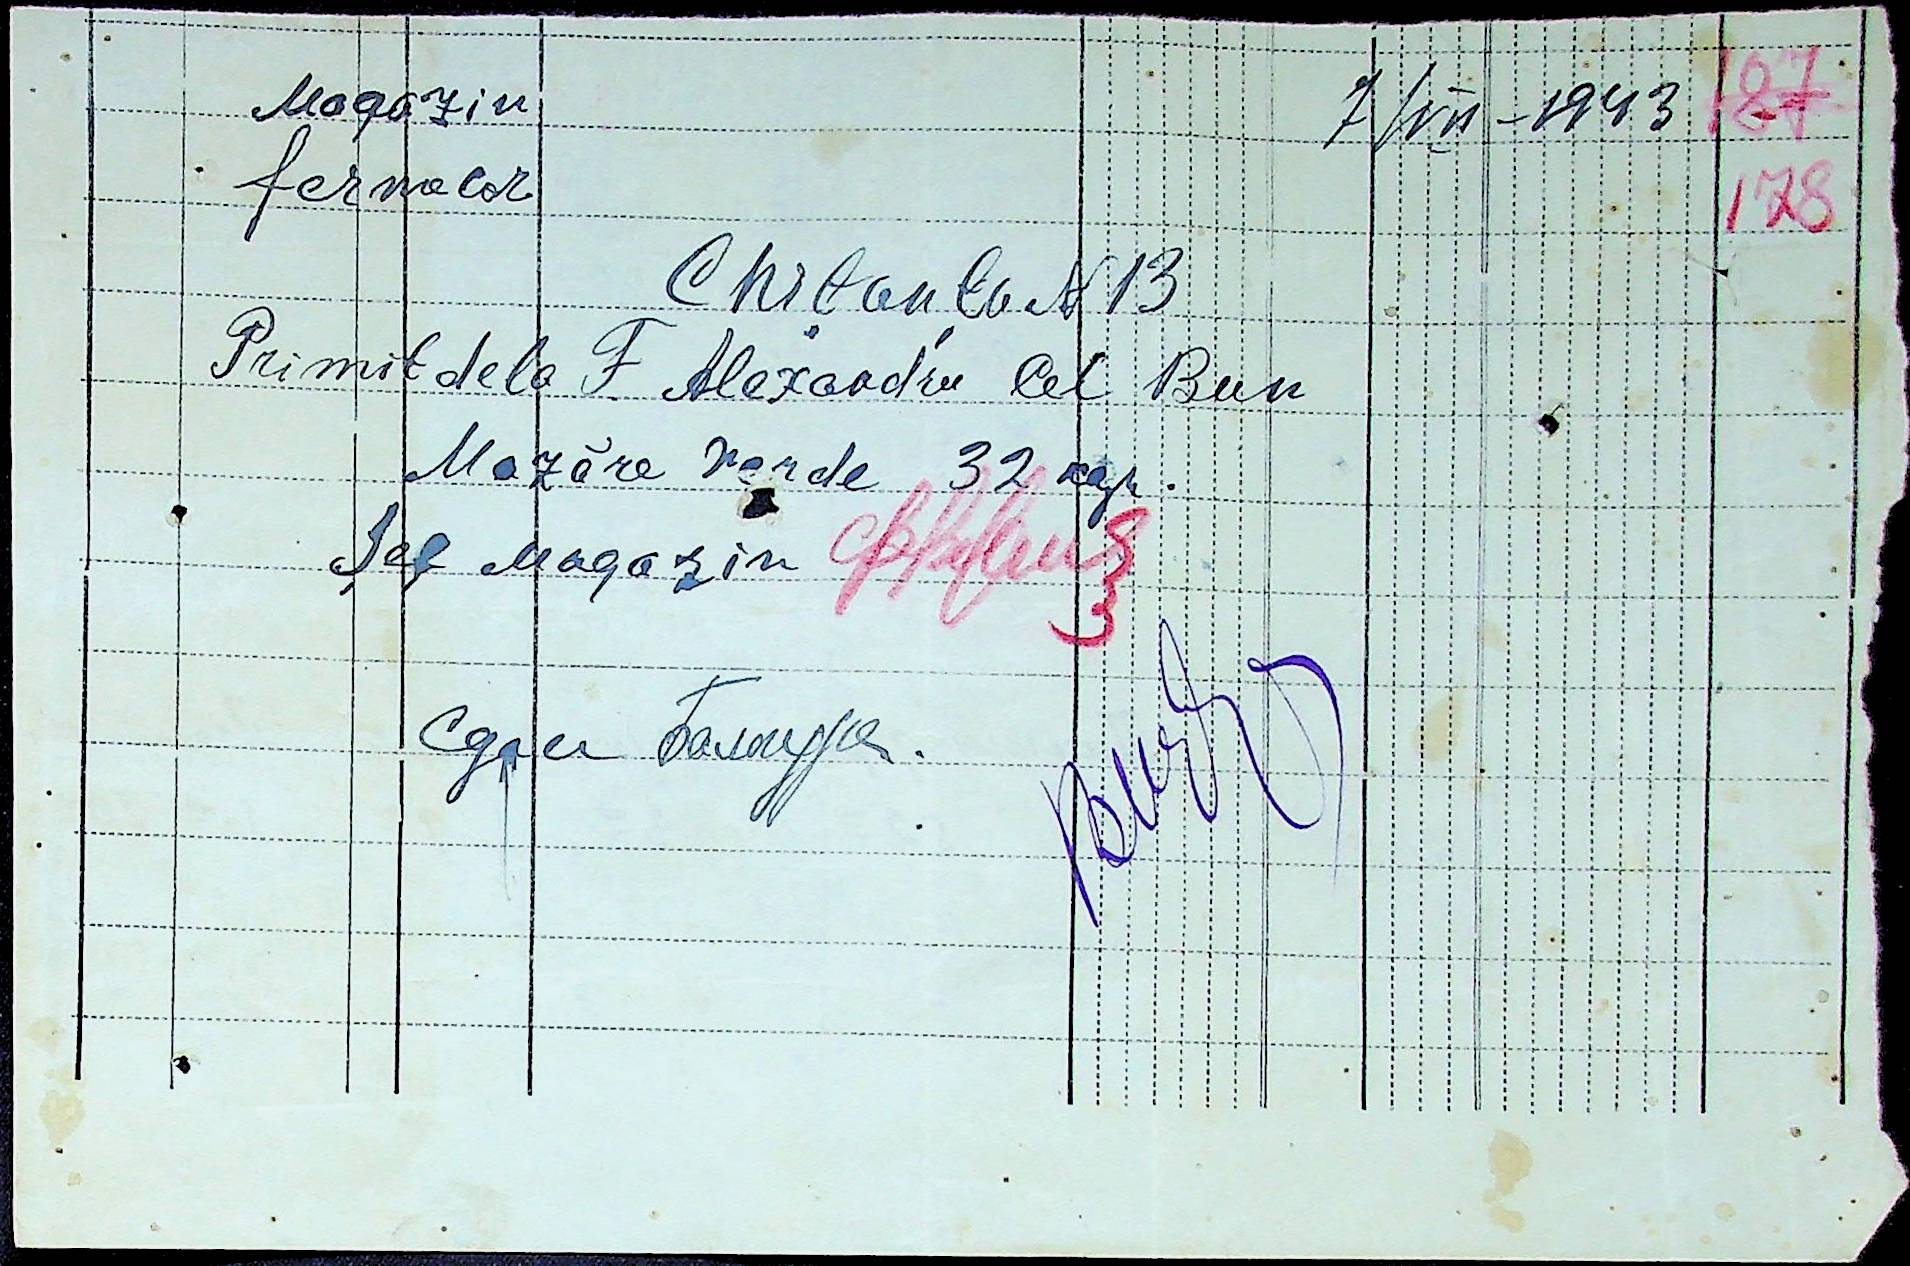 Magazin
fermelor
7/VII-1943
167
178
Chitanta N 13
Primit dela F. Alexandru Cel Bun
Mazăre verde 32 kgr.
Şef Magazin
3
Сдал